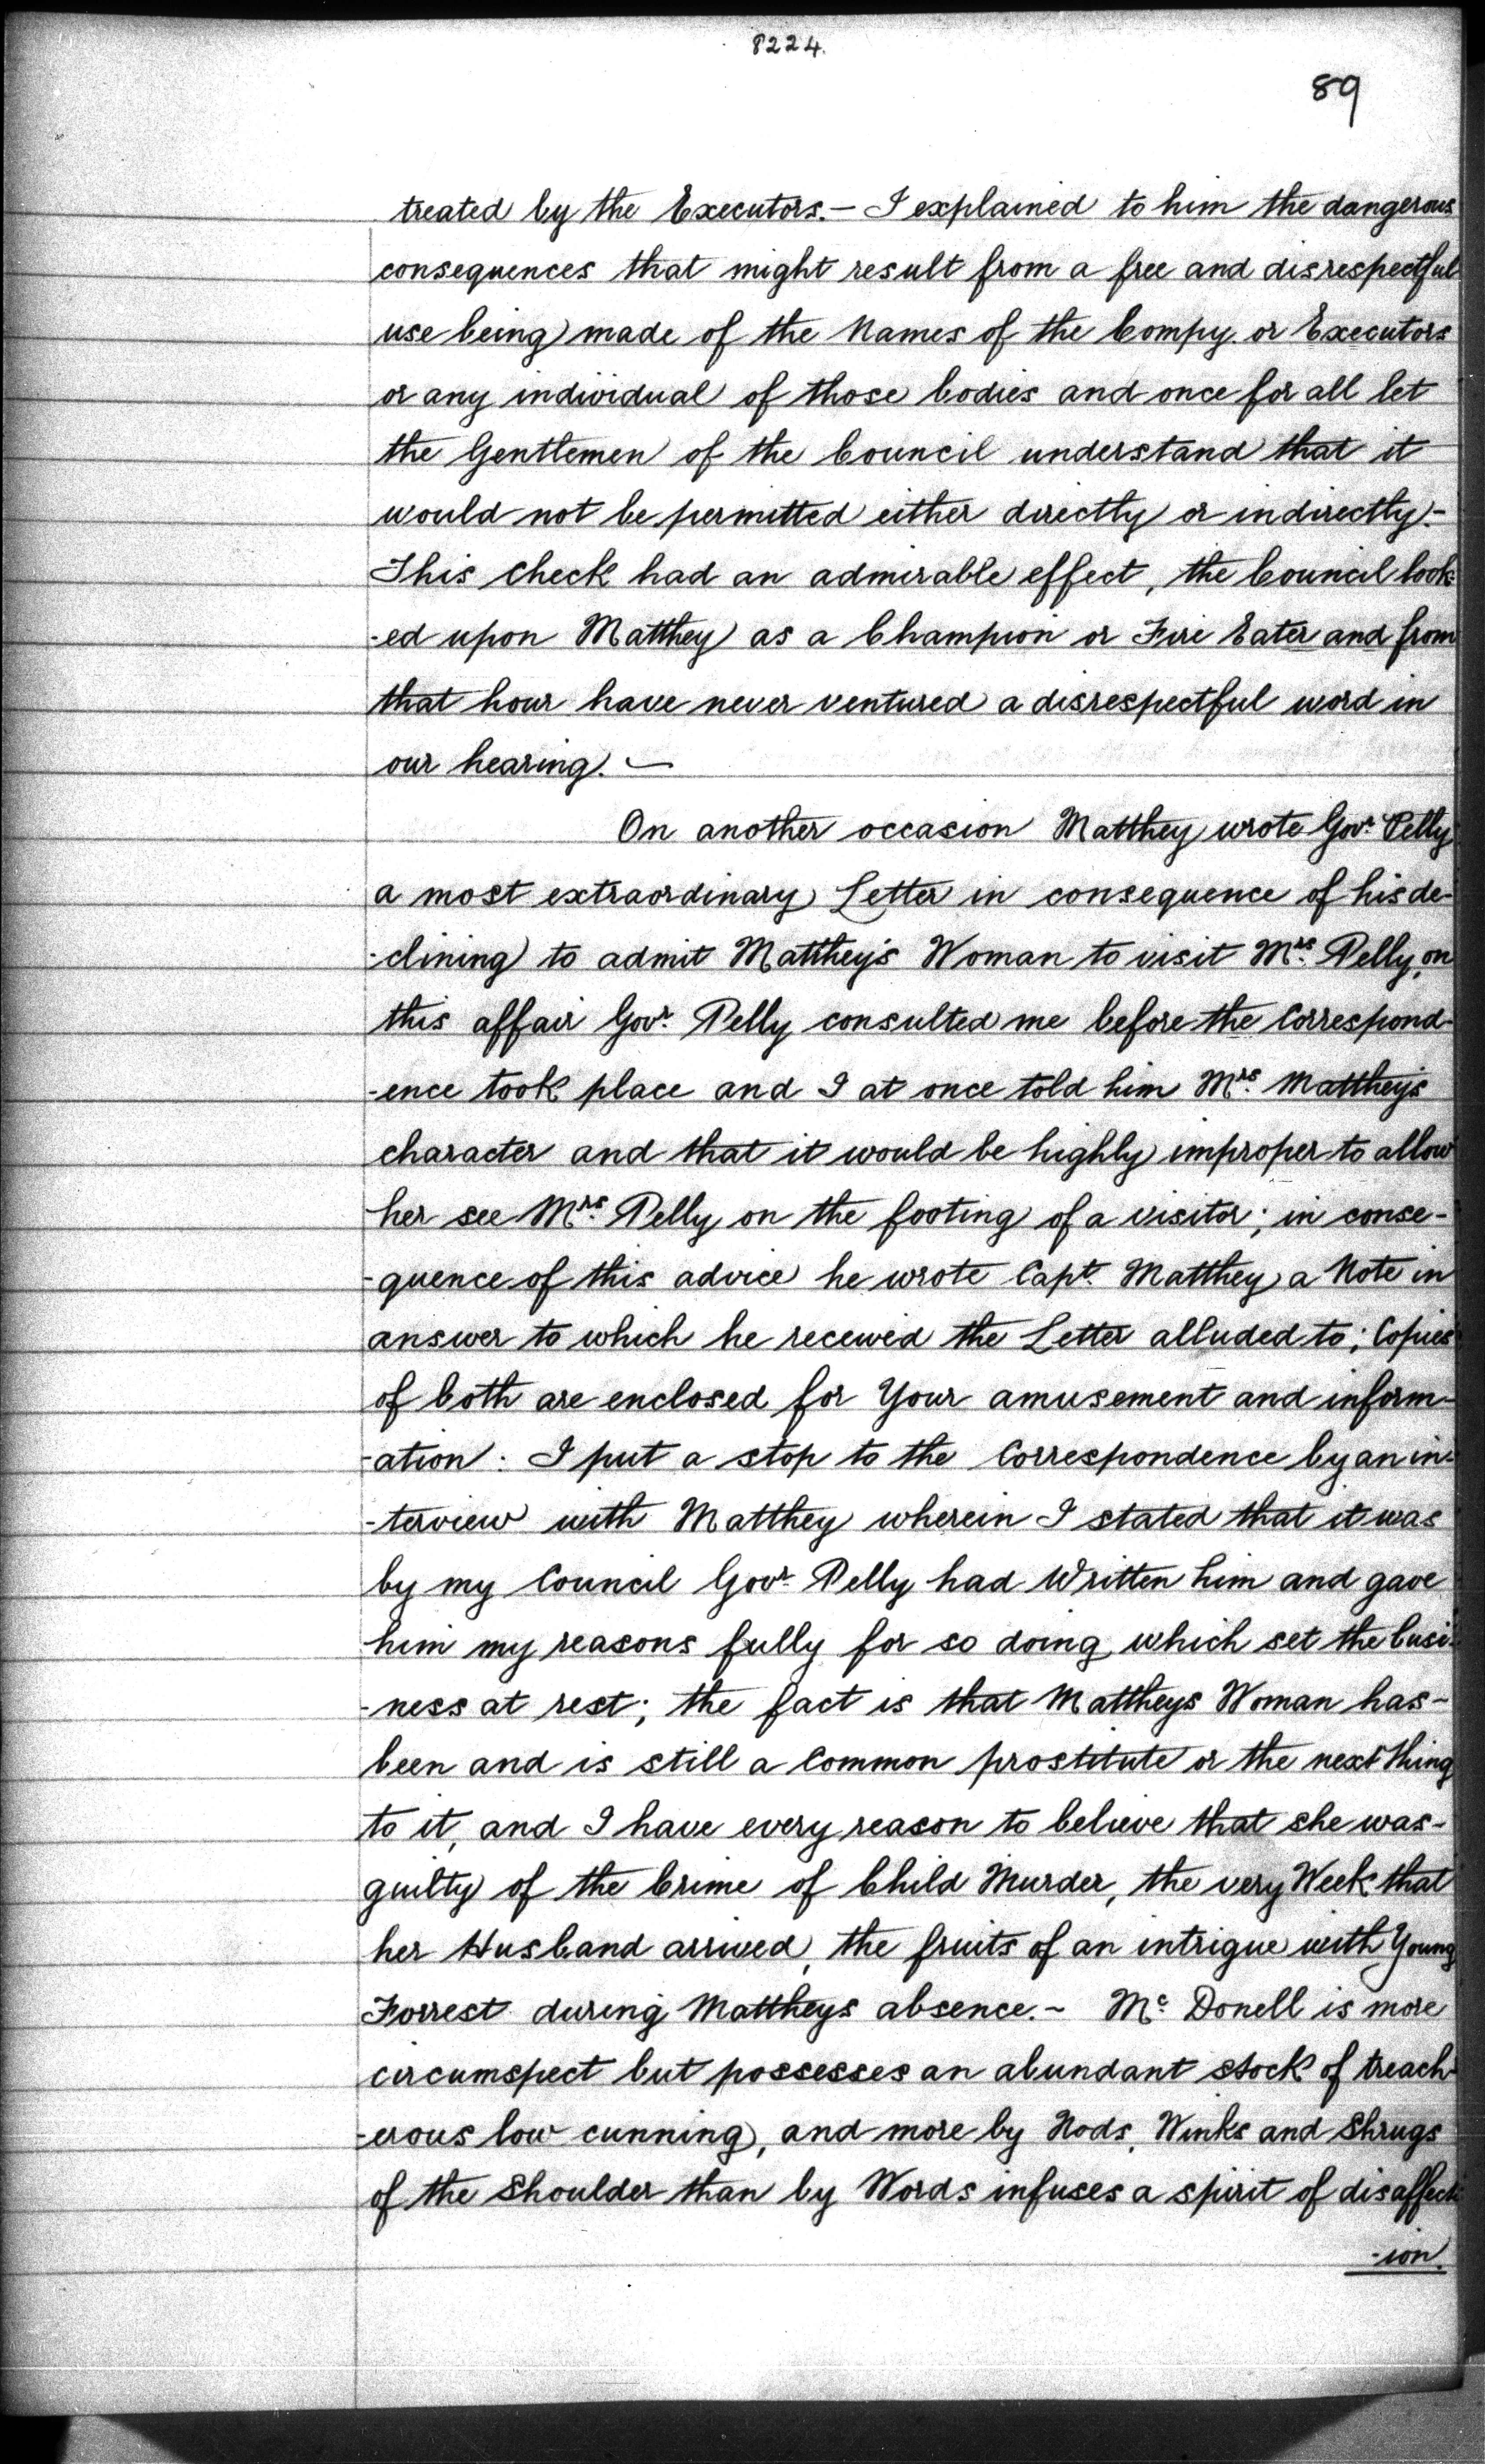 8224.
89
treated by the Executors.— I explained to him the dangerous
consequences that might result from a free and disrespectful
use being made of the Names of the Compy. or Executors
or any individual of those bodies and once for all let
the Gentlemen of the Council understand that it
would not be permitted either directly or indirectly.—
This check had an admirable effect, the Council look-
-ed upon Matthey as a Champion or Fire Eater and from
that hour have never ventured a disrespectful word in
our hearing. —
On another occasion Matthey wrote Govr. Pelly
a most extraordinary Letter in consequence of his de-
-clining to admit Matthey's Woman to visit Mrs. Pelly, on
this affair Govr. Pelly consulted me before the Correspond-
-ence took place and I at once told him Mrs. Matthey's
character and that it would be highly improper to allow
her see Mrs. Pelly on the footing of a visitor; in conse-
-quence of this advice he wrote Capt. Matthey a Note in
answer to which he received the Letter alluded to; Copies
of both are enclosed for Your amusement and inform-
-ation: I put a stop to the Correspondence by an in-
-terview with Matthey wherein I stated that it was
by my Council Govr. Pelly had Written him and gave
him my reasons fully for so doing which set the busi-
-ness at rest; the fact is that Mattheys Woman has-
been and is still a Common prostitute or the next thing
to it, and I have every reason to believe that she was-
guilty of the Crime of Child Murder, the very Week that
her Husband arrived, the fruits of an intrigue with Young
Forrest during Mattheys absence.~ Mc. Donell is more
circumspect but possesses an abundant stock of treach-
-erous low cunning, and more by Nods, Winks and Shrugs
of the Shoulder than by Words infuses a spirit of disaffect-
-ion.